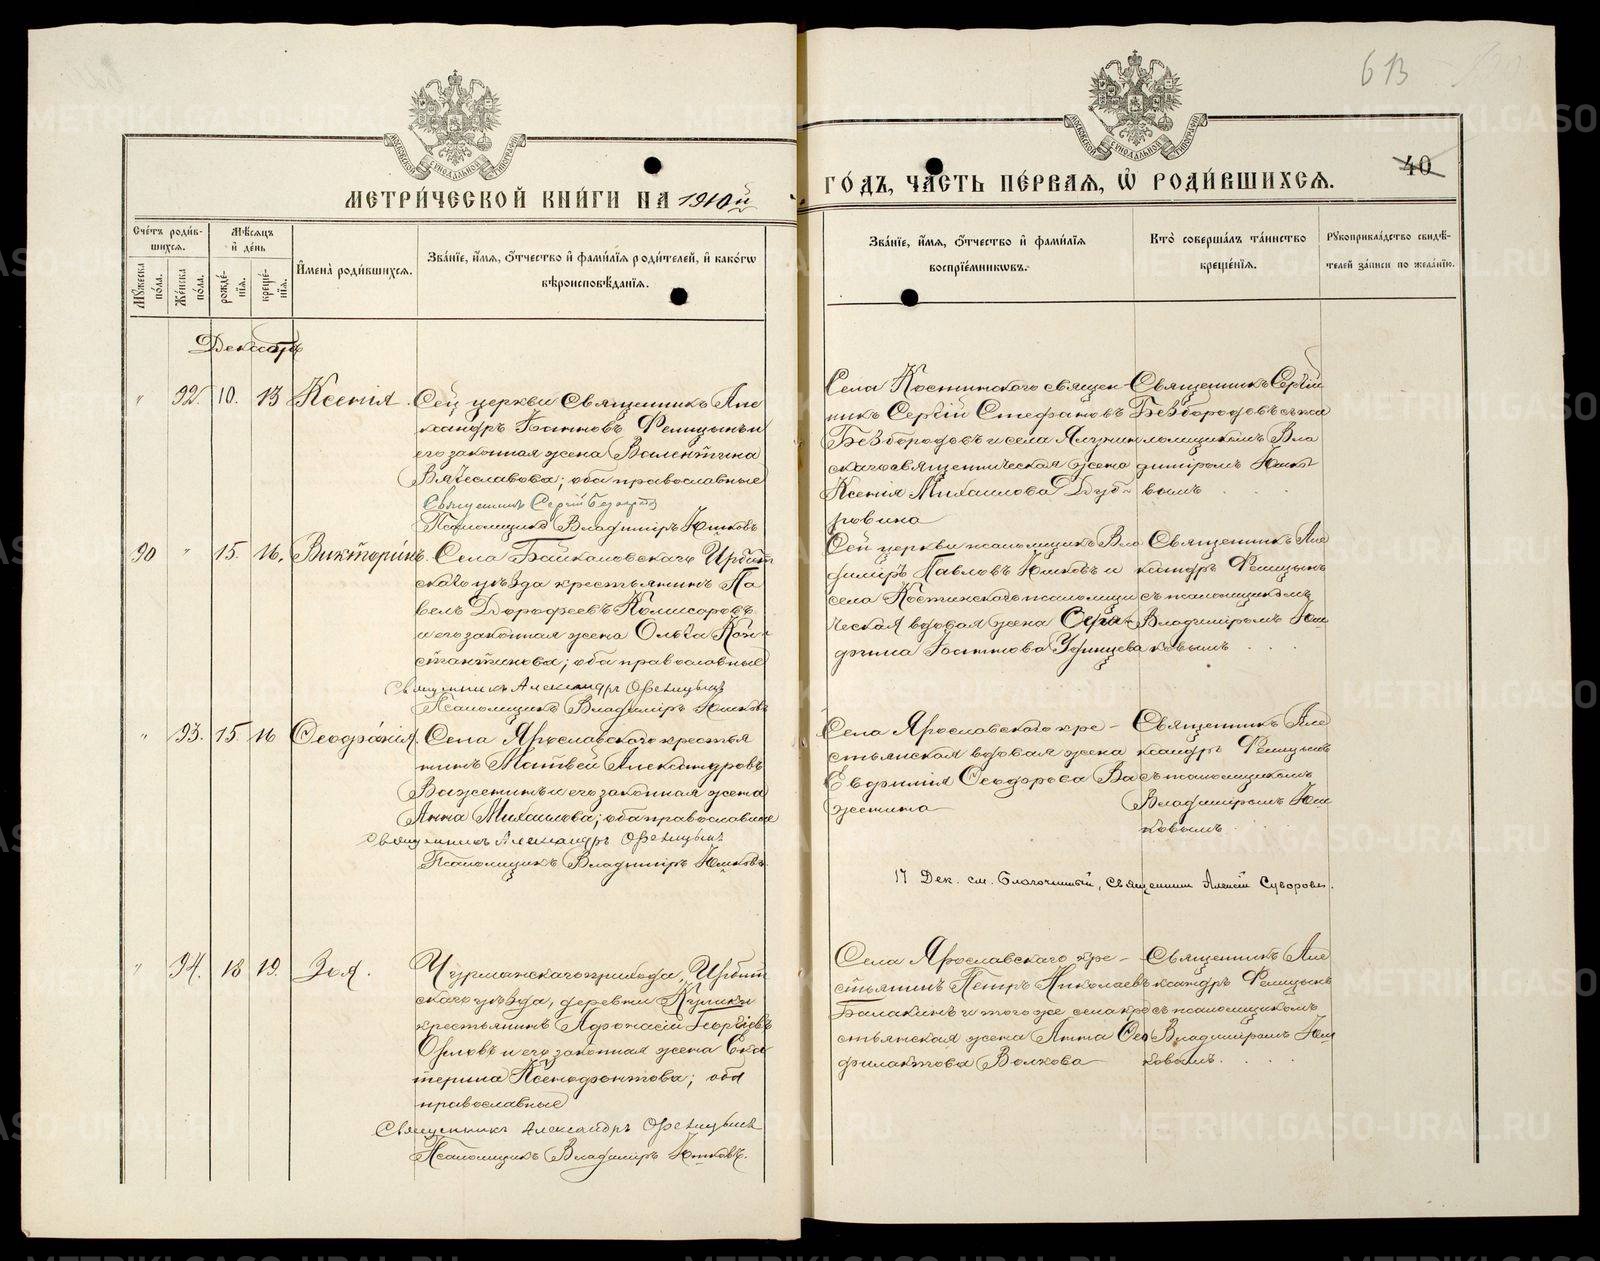 613
40
МЕТРИЧЕСКОЙ КНИГИ НА 1910й
ГОДЪ, ЧАСТЬ ПЕРВАЯ, Ѡ РОДИВШИХСЯ.
Счетъ родившихся.
Мѣсяцъ и день
Мужеска пола.
Женска пола.
рожденія.
крещенія.
Имена родившихся.
Званіе, имя, отчество и фамилія родителей, и какогѡ
вѣроисповѣданія.
Званіе, имя, отчество и фамилія
воспріемникѡвъ.
Кто совершалъ таинство
крещенія.
Рукоприкладство свидѣ-
телей записи по желанію.
Декабрь
" 92. 10. 13 Ксенія.
Сей церкви Священникъ Але
ксандръ Іоанновъ Флицынъ и
его законная жена Валентина
Вячеславова; оба православные
Священникъ Сергій
Псаломщикъ Владиміръ Юшковъ
Села Костинского священ-
никъ Сергій Стефановъ
Безбородовъ и села
ская священническая жена
Ксенія Михаилова Дуб-
ровина
Священникъ Сергій
Безбородовъ съ пса
ломщикомъ Вла
диміромъ Юшко
вымъ
90 " 15. 16. Викторинъ.
Села Байкаловскаго Ирбит
скаго уѣзда крестьянинъ Па
велъ Дорофеевъ Комисаровъ
и его законная жена Ольга Кон-
стантинова; оба православные
Священникъ Александръ
Псаломщикъ Владиміръ Юшковъ
Сей церкви псаломщикъ Вла
диміръ Павловъ Юшковъ и
села Костинскаго псаломщи
ческая вдовая жена Сера-
фима Іоаннова Удинцева
Священникъ Але
ксандръ
съ псаломщикомъ
Владиміромъ Юш
ковымъ
" 93. 15 16 Ѳеофанія.
Села Ярославскаго крестья
нинъ Матвей Александровъ
Важенинъ и его законная жена
Анна Михаилова; оба православные
Священникъ Александръ
Псаломщикъ Владиміръ Юшковъ.
Села Ярославскаго кре-
стьянская вдовая жена
Евфимія Ѳеодорова Ва
женина
Священникъ Але
ксандръ
съ псаломщикомъ
Владиміромъ Юш
ковымъ
17 Дек. см. Благочинный, Священник Алексій Суворовъ.
" 94. 18 19. Зоя.
Чурманскаго прихода, Ирбит
скаго уѣзда, деревни Кулики
крестьянинъ Афонасій Георгіевъ
Орловъ и его законная жена Ека
терина Ксенофонтова; оба
православные
Священникъ Александръ
Псаломщикъ Владиміръ Юшковъ.
Села Ярославскаго кре-
стьянинъ Петръ Николаевъ
Балакинъ и того же села кре
стьянская жена Анна Ѳео
филактова Волкова
Священникъ Але
ксандръ
съ псаломщикомъ
Владиміромъ Юш
ковымъ.
METRIKI.GASO-URAL.RU